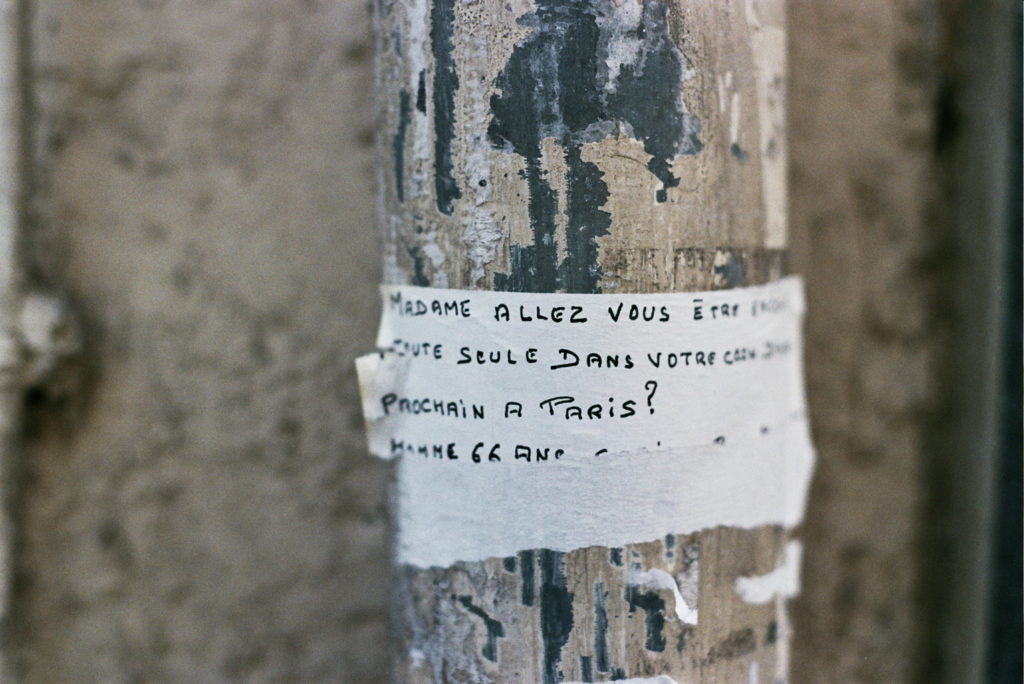 MADAME ALLEZ VOUS ÊTRE
TOUTE SEULE DANS VOTRE COIN
PROCHAIN A PARIS?
HOMME 66 ANS